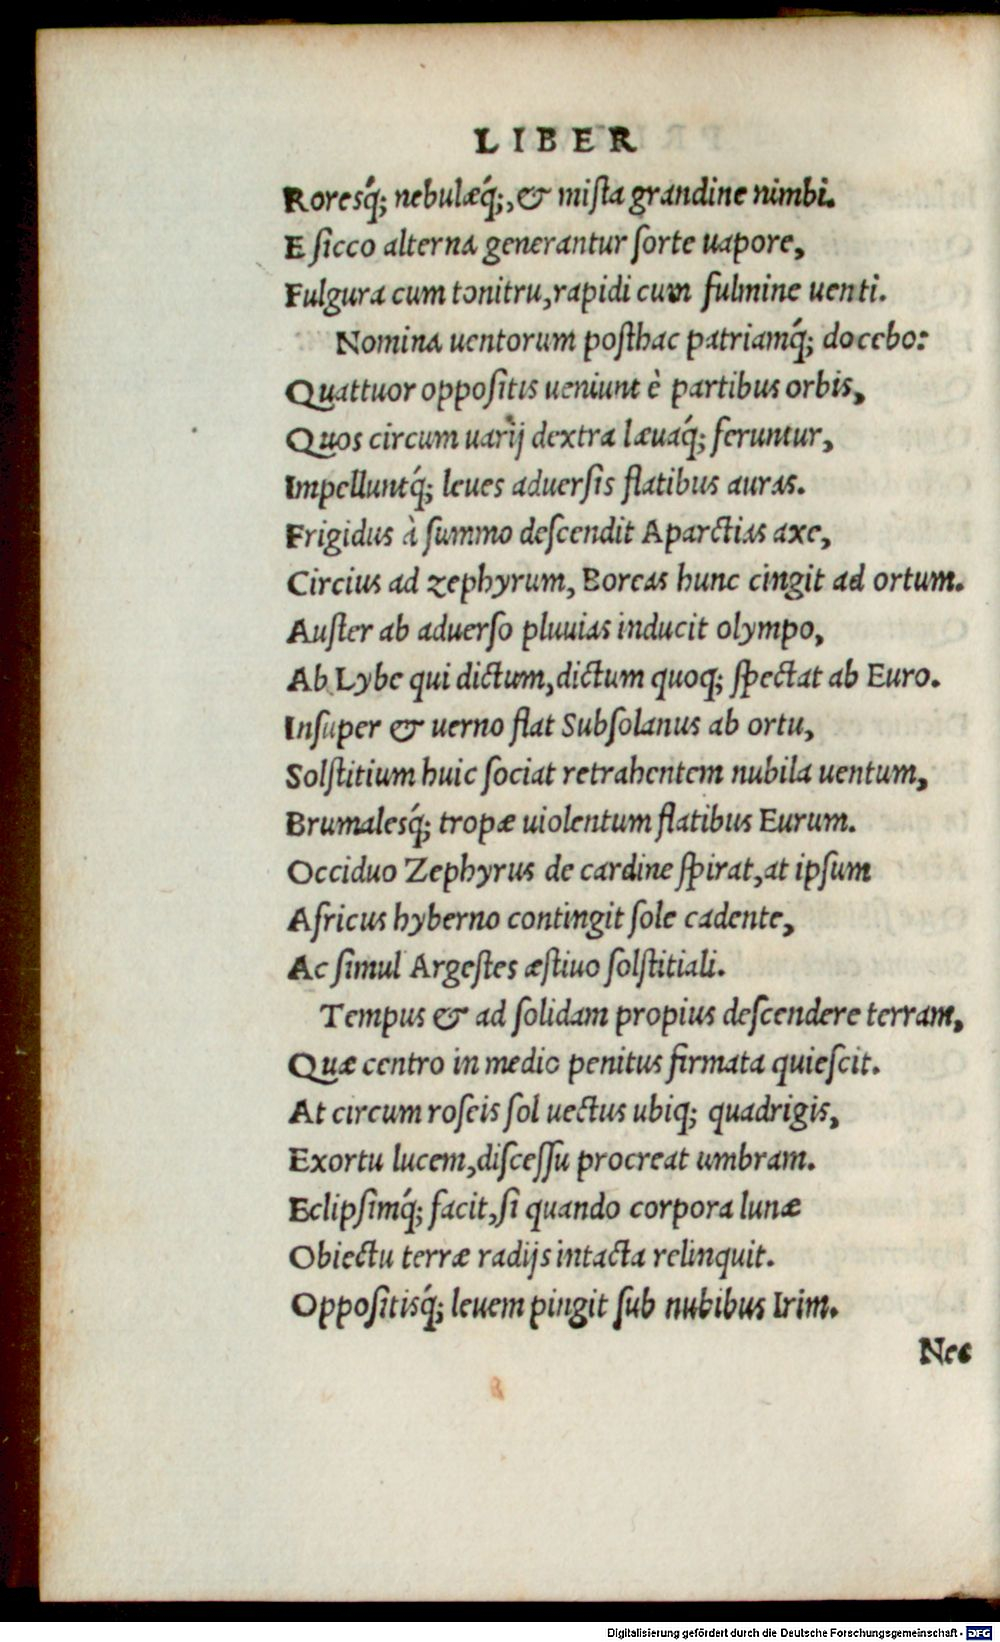 LIBER
Roresq́; nebulæq́;, & miſta grandine nimbi.
E ſicco alterna generantur ſorte uapore,
Fulgura cum tonitru, rapidi cum fulmine uenti.
Nomina uentorum poſthac patriamq́; docebo:
Quattuor oppoſitis ueniunt è partibus orbis,
Quos circum uarij dextra læuaq́; feruntur,
Impelluntq́; leues aduerſis flatibus auras.
Frigidus à ſummo deſcendit Aparctias axe,
Circius ad zephyrum, Boreas hunc cingit ad ortum.
Auſter ab aduerſo pluuias inducit olympo,
Ab Lybe qui dictum, dictum quoq; ſpectat ab Euro.
Inſuper & uerno flat Subſolanus ab ortu,
Solſtitium huic ſociat retrahentem nubila uentum,
Brumalesq́; tropæ uiolentum flatibus Eurum.
Occiduo Zephyrus de cardine ſpirat, at ipſum
Africus hyberno contingit ſole cadente,
Ac ſimul Argeſtes æſtiuo ſolſtitiali.
Tempus & ad ſolidam propius deſcendere terram,
Quæ centro in medio penitus firmata quieſcit.
At circum roſeis ſol uectus ubiq; quadrigis,
Exortu lucem, diſceſſu procreat umbram.
Eclipſimq́; facit, ſi quando corpora lunæ
Obiectu terræ radijs intacta relinquit.
Oppoſitisq́; leuem pingit ſub nubibus Irim.
Nec
Digitalisierung gefördert durch die Deutsche Forschungsgemeinschaft - DFG